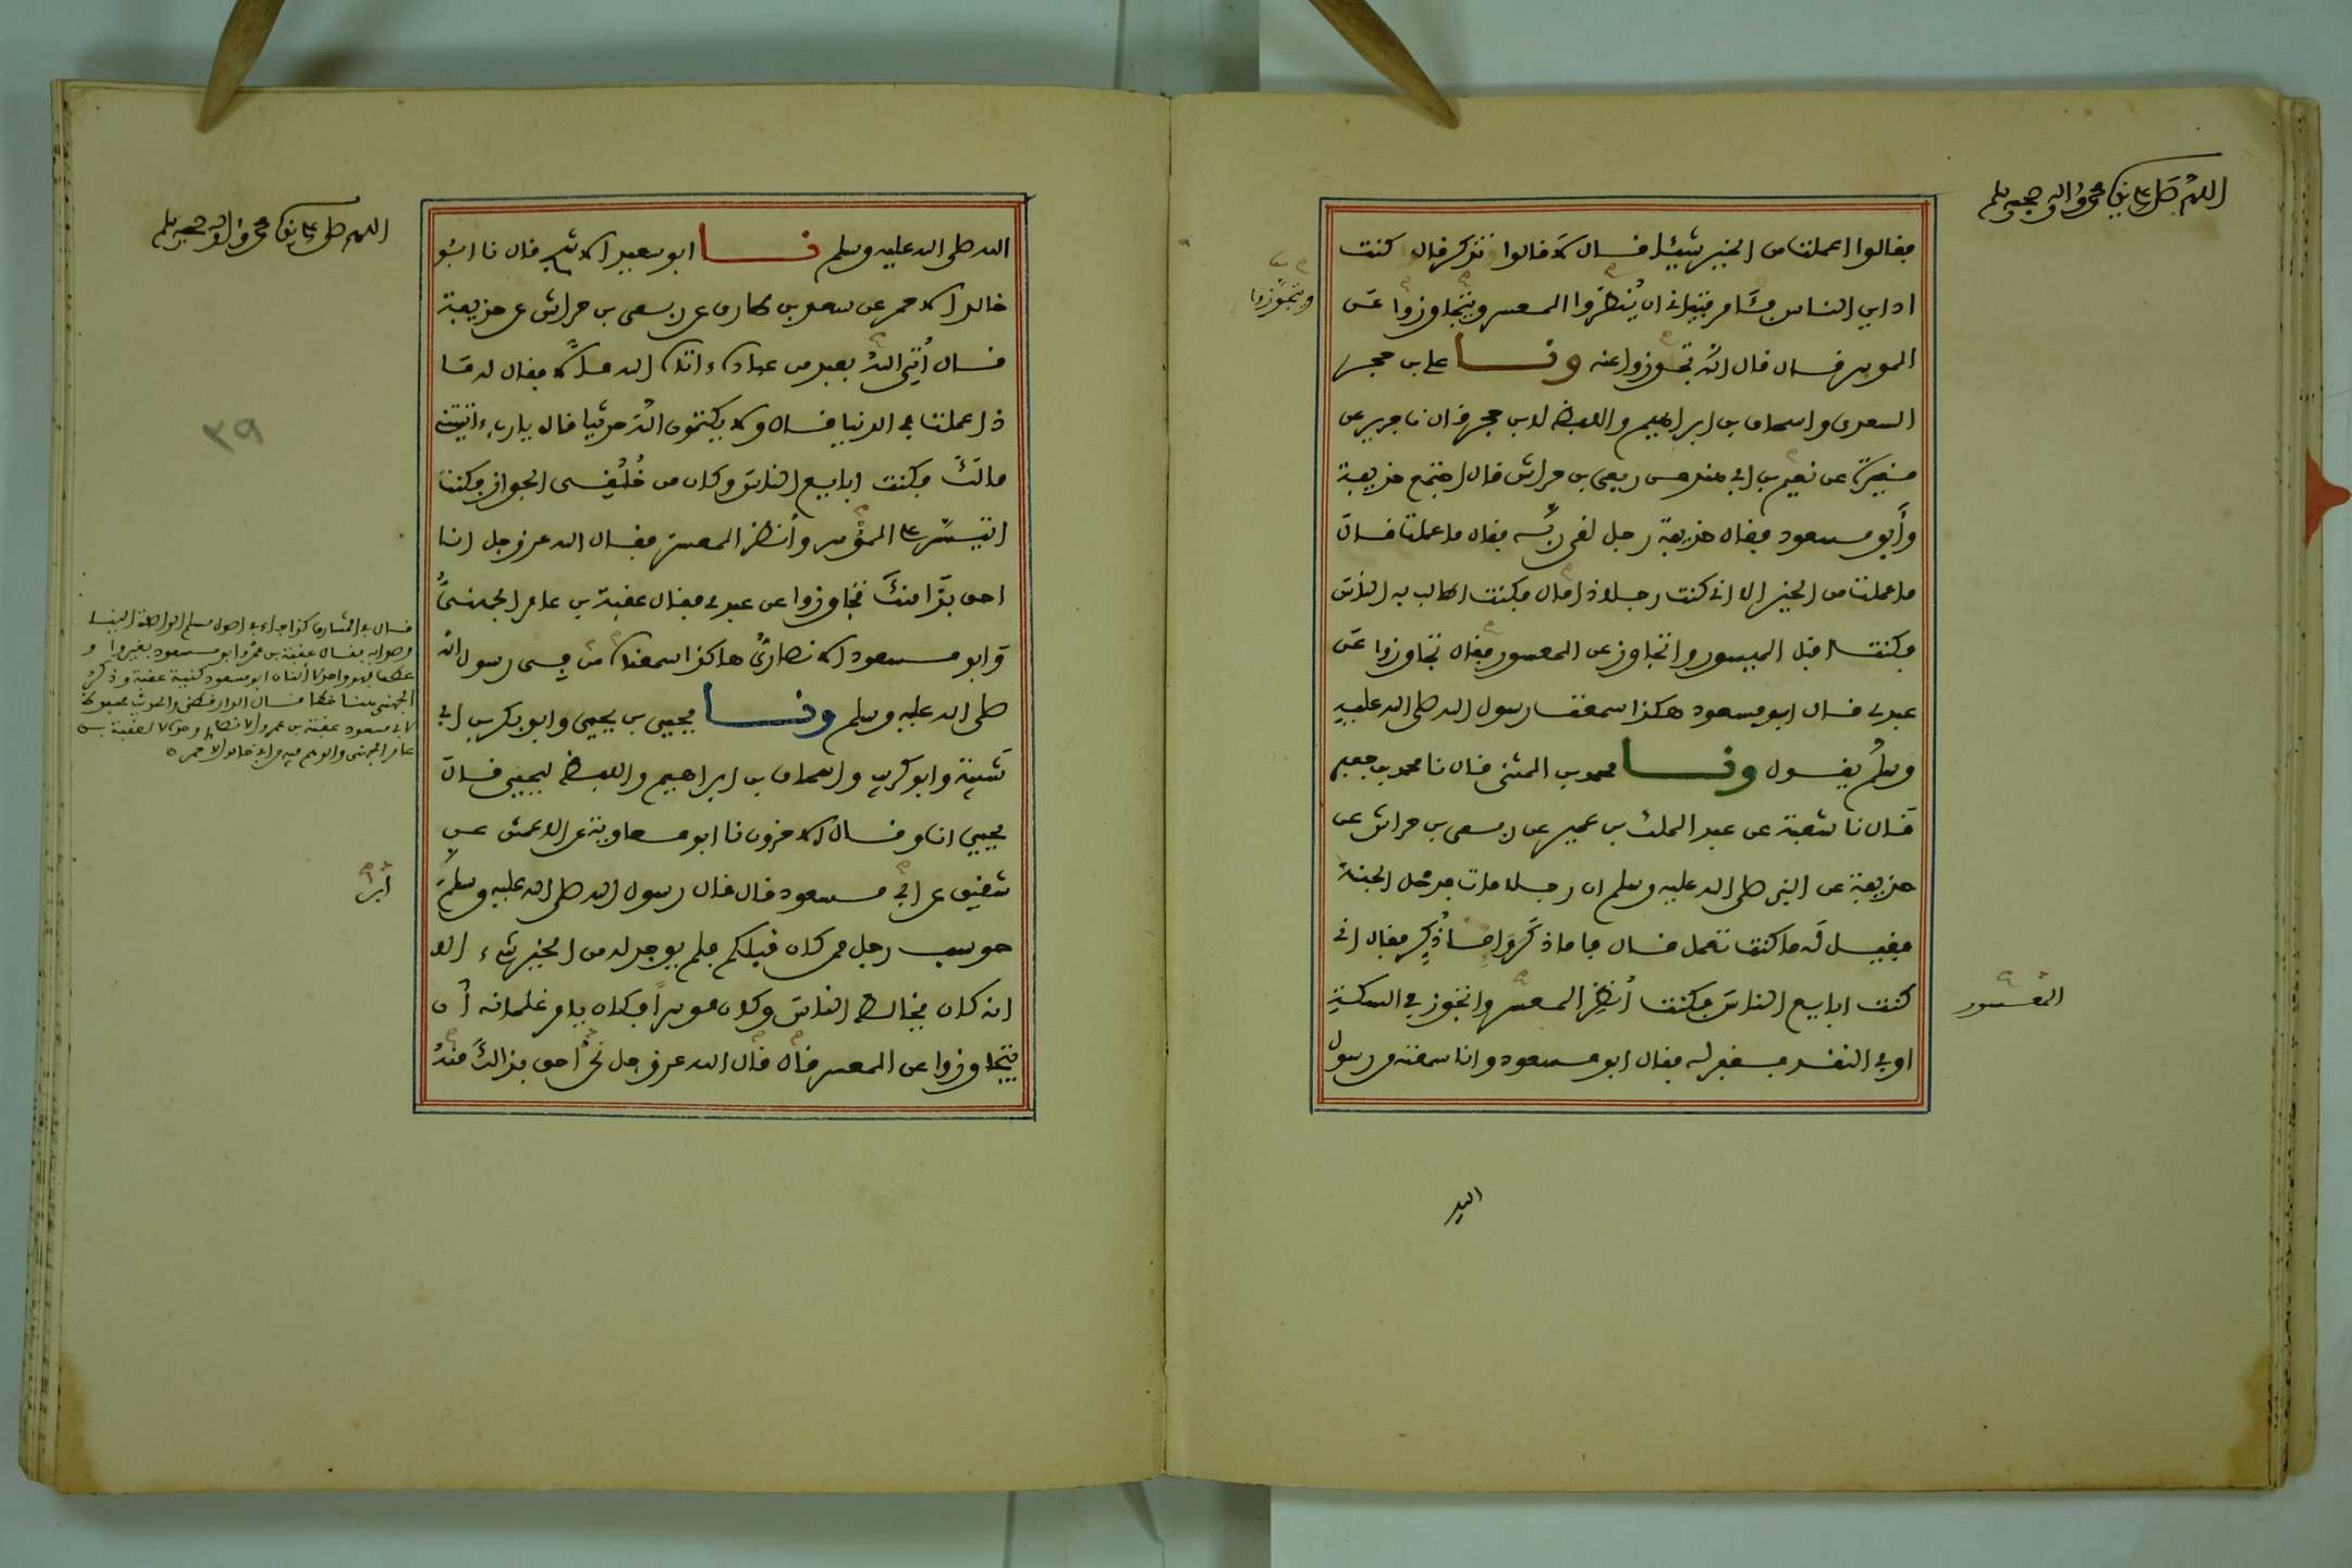 اللهم صل على نبينا محمد واله وصحبه وسلم
فقالوا اعملت من الخير شيئا فقال لا قالوا تذكر قال كنت
اداين الناس فـامر فتيانى ان يُنظروا المعسر ويتجاوزوا عن
ويتجوزوا
الموسر قال قال الله تجوزوا عنه ونا على بن حجر
السعدى واسحاق بن ابراهيم واللفظ لابن حجر قال نا جرير عن
مغيرة عن نعيم بن ابى هند عن ربعى بن حراش قال اجتمع حذيفة
وأبو مسعود فقال حذيفة رجل لقى ربه فقال ما عملت قال
ما عملت من الخير الا انى كنت رجلا ذا مال فكنت اطالب به الناس
فكنت اقبل الميسور واتجاوز عن المعسور فقال تجاوزوا عن
عبدى قال ابو مسعود هكذا سمعت رسول الله صلى الله عليه
وسلم يقول ونا محمد بن المثنى قال نا محمد بن جعفر
قال نا شعبة عن عبد الملك بن عمير عن ربعى بن حراش عن
حذيفة عن النبى صلى الله عليه وسلم ان رجلا مات فدخل الجنة
فقيل له ما كنت تعمل قال فاما ذكر واما ذُكِّر فقال انى
كنت ابايع الناس فكنت أنظر المعسر واتجوز فى السكة
المعسور
او فى النقد فغفر له فقال ابو مسعود وانا سمعته من رسول
الله
اللهم صل على نبينا محمد واله وصحبه وسلم
الله صلى الله عليه وسلم نا ابو سعيد الاشج قال نا ابو
خالد الاحمر عن سعد بن طارق عن ربعى بن حراش عن حذيفة
قال أُتِىَ الله بعبد من عباده ءاتاه الله مالا فقال له ما
ذا عملت فى الدنيا قال ولا يكتمون الله حديثا قال يا رب ءاتيتنى
٣٩
مالك فكنت ابايع الناس وكان من خُلُقِى الجواز فكنت
اتيسر على الموسر وأنظر المعسر فقال الله عز وجل انا
احق بذا منك تجاوزوا عن عبدى فقال عقبة بن عامر الجهنى
وابو مسعود الانصارى هاكذا سمعناه من فى رسول الله
صلى الله عليه وسلم ونا يحيى بن يحيى وابو بكر بن ابى
شيبة وابو كريب واسحاق بن ابراهيم واللفظ ليحيى قال
يحيى انا وقال الاخرون نا ابو معاوية عن الاعمش عن
شقيق عن ابى مسعود قال قال رسول الله صلى الله عليه وسلم
حوسب رجل ممن كان قبلكم فلم يوجد له من الخير شىء الا
انه كان يخالط الناس وكان موسرا فكان يامر غلمانه أن
يتجاوزوا عن المعسر قال قال الله عز وجل نحن احق بذالك منه
قال فى المشارق كذا جاء فى اصول مسلم الواصلة الينا
وصوابه فقال عقبة بن عمرو ابو مسعود بغير واو
عطف فهو واحد لا اثنان ابو مسعود كنية عقبة وذكر
الجهنى هنا خطا قال الدارقطنى والحديث محفوظ
لابى مسعود عقبة بن عمرو الانصارى وحده لا لعقبة بن
عامر الجهنى والوهم فيه من ابى خالد الاحمر